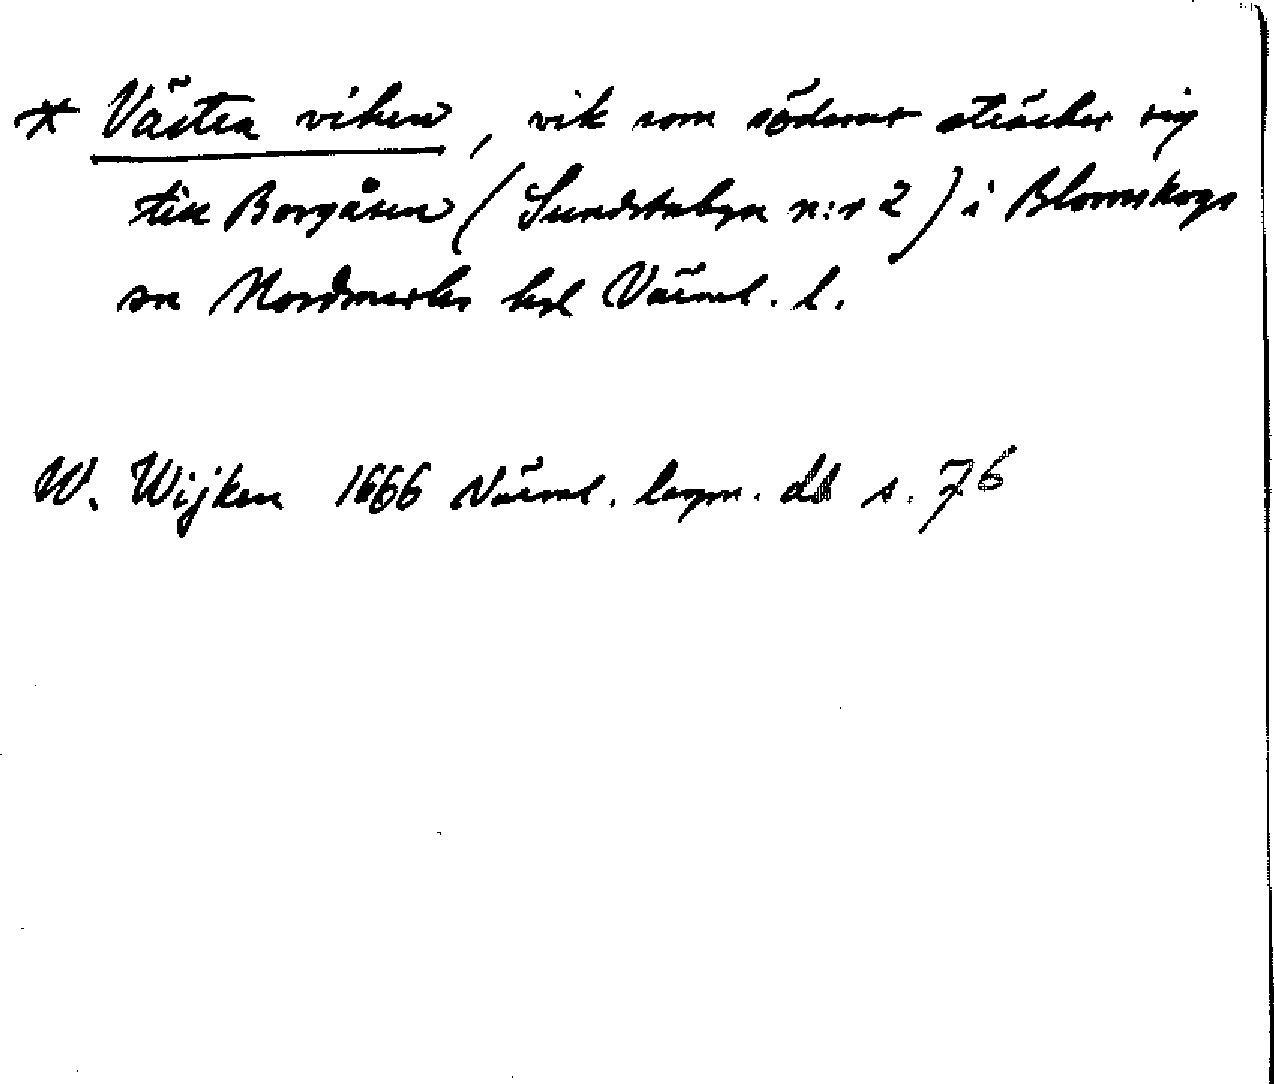 * Västra viken, vik som söderut sträcker sig
till Borgåsen (Sundstabyn n:r 2) i Blomskogs
sn Nordmarks hd Värml. l.
W. Wijken 1666 Värml. lagm. db s. 76